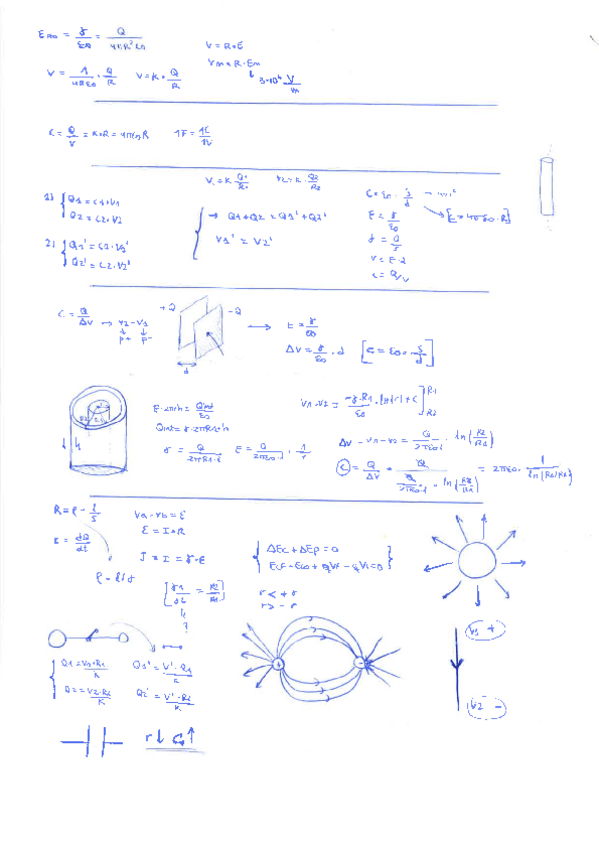 E R0 = γ/ε0 = Q/4πR²ε0
V = R·E
Vm = R·Em
3·10⁶ V/m
V = 1/4πε0 · Q/R   V = K · Q/R
C = Q/V = K·R = 4πε0R   1F = 1C/1V
V1 = K Q1/R1   V2 = K · Q2/R2
1) { Q1 = C1·V1
Q2 = C2·V2
→ Q1+Q2 = Q1'+Q2'
V1' = V2'
2) { Q1' = C1·V1'
Q2' = C2·V2'
C = ε0 · S/d
[C = 4πε0·R]
E = γ/ε0
γ = Q/S
V = E·d
C = Q/V
C = Q/ΔV → V2 - V1
P+ P-
+Q
-Q
d
→ E = γ/ε0
ΔV = γ/ε0 · d   [C = ε0 · S/d]
E·2πrh = Qint/ε0
Qint = γ·2πR1·h
γ = Q/2πR1·l   E = Q/2πε0·l · 1/r
V1-V2 = -γ·R1/ε0 · [ln(r)+C] R1 R2
ΔV = V1-V2 = Q/2πε0·l · ln(R2/R1)
C = Q/ΔV = Q/ Q/2πε0·l · ln(R2/R1) = 2πε0 · 1/ln(R2/R1)
R = ρ · l/S
Va - Vb = ε
ε = I·R
I = dQ/dt
J = I = γ·E
ρ = 1/γ
[γ1/γ2 = R2/R1]
?
{ ΔEc + ΔEp = 0
Ecf - Eco + qVf - qVi = 0 }
r < + r
r > - r
Q1 = V1·R1/K   Q1' = V'·R1/K
Q2 = V2·R2/K   Q2' = V'·R2/K
r↓ C↑
+
-
V1 +
V2 -